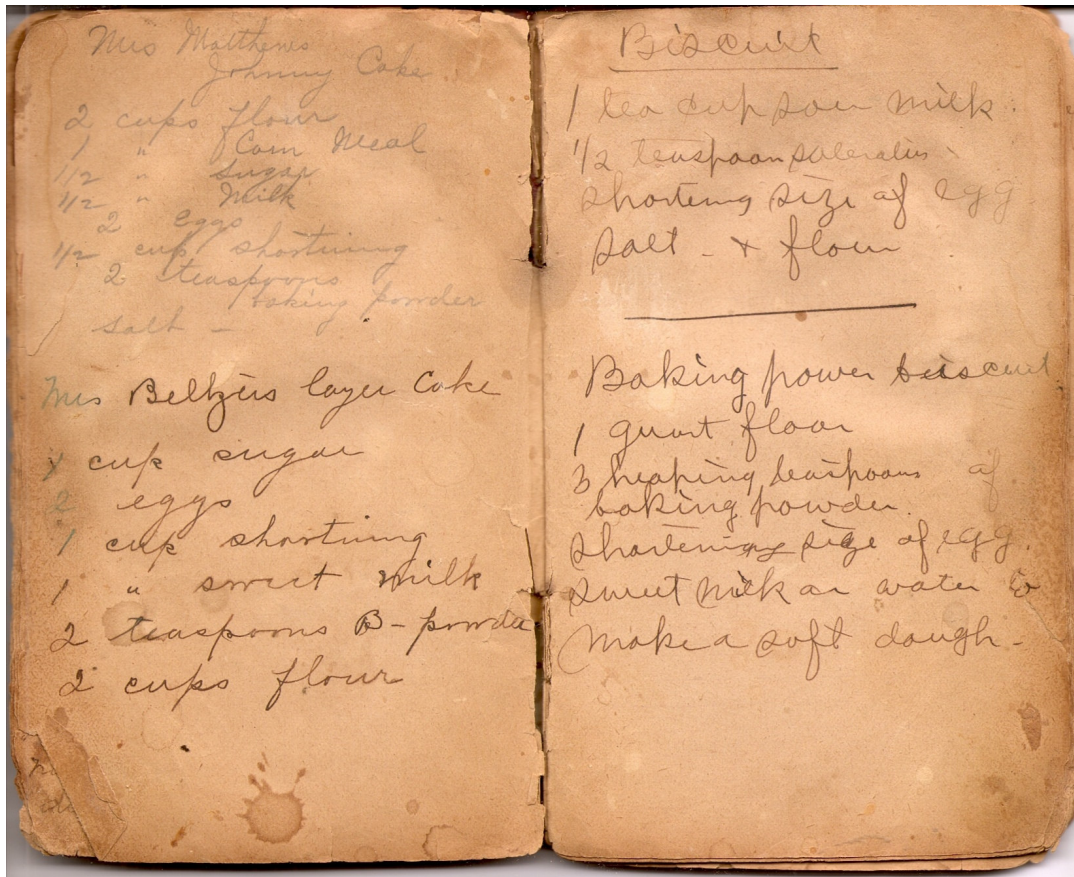 Mrs Matthews
Johnny Cake
2 cups flour
1 " Corn Meal
1/2 " Sugar
1/2 " Milk
2 eggs
1/2 cup shortining
2 teaspoons
baking powder
salt -
Mrs Beltzers layer Cake
1 cup sugar
2 eggs
1 cup shortining
1 " sweet milk
2 teaspoons B- powder
2 cups flour
Biscuit
1 tea cup sour milk.
1/2 teaspoon saleratus
shortening size of egg
salt - + flour
Baking power biscuit
1 quart flour
3 heaping teaspoons of
baking powder.
shortening size of egg.
sweet milk or water to
make a soft dough -